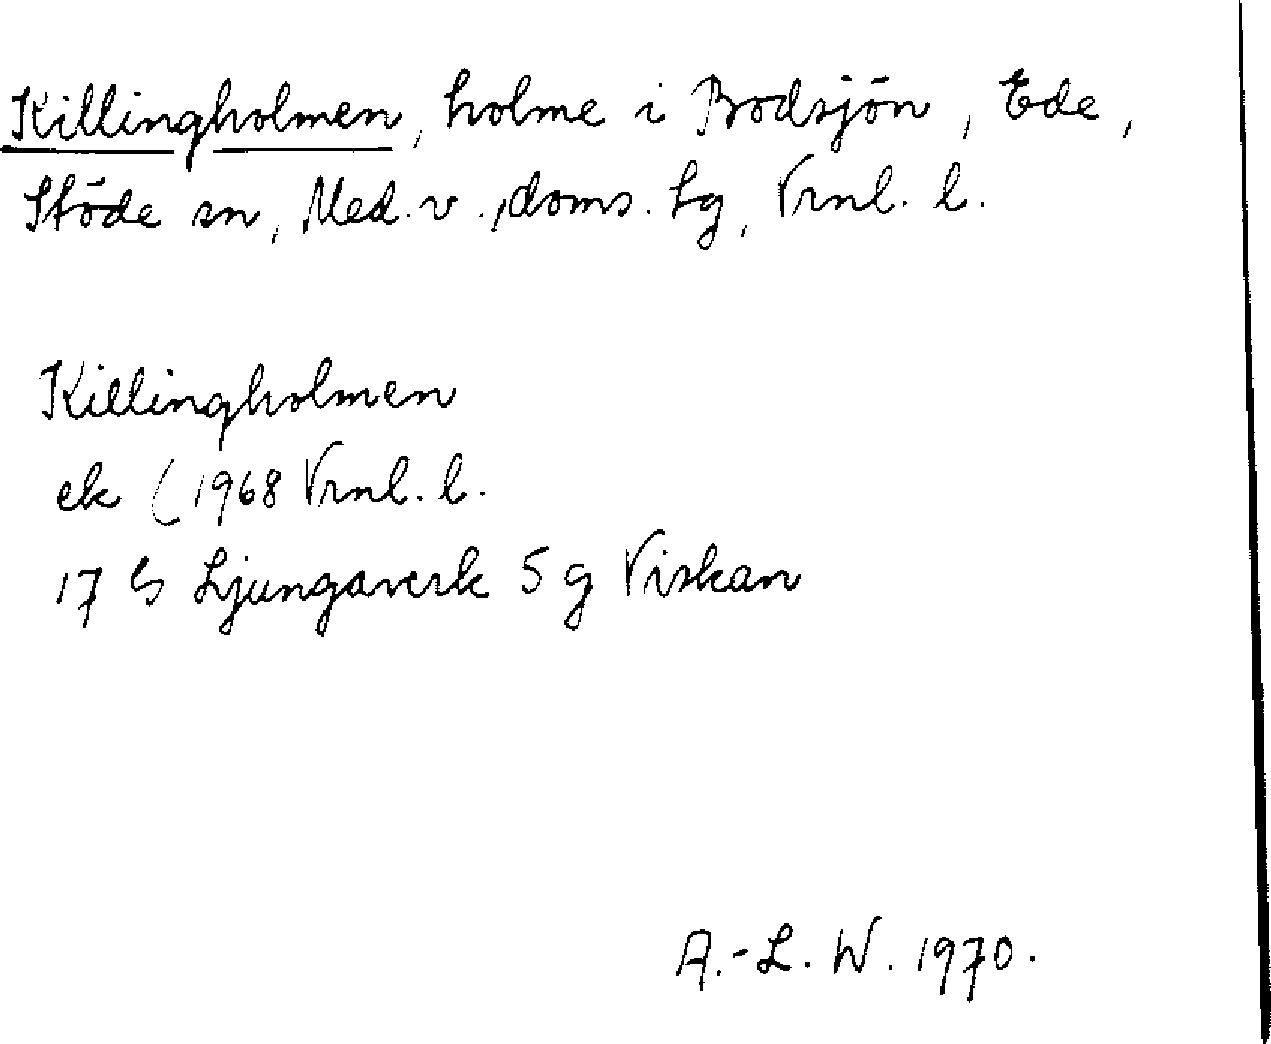 Killingholmen, holme i Bodsjön, Ede,
Stöde sn, Med. v., doms. tg, Vrnl. l.
Killingholmen
ek (1968 Vrnl. l.
17 G Ljungaverk 5 g Viskan
A.-L. W. 1970.